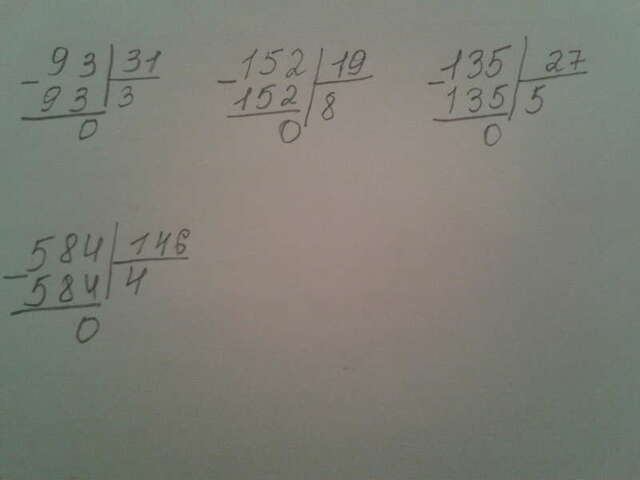 93 | 31
- 93 | 3
0
152 | 19
- 152 | 8
0
135 | 27
- 135 | 5
0
584 | 146
- 584 | 4
0